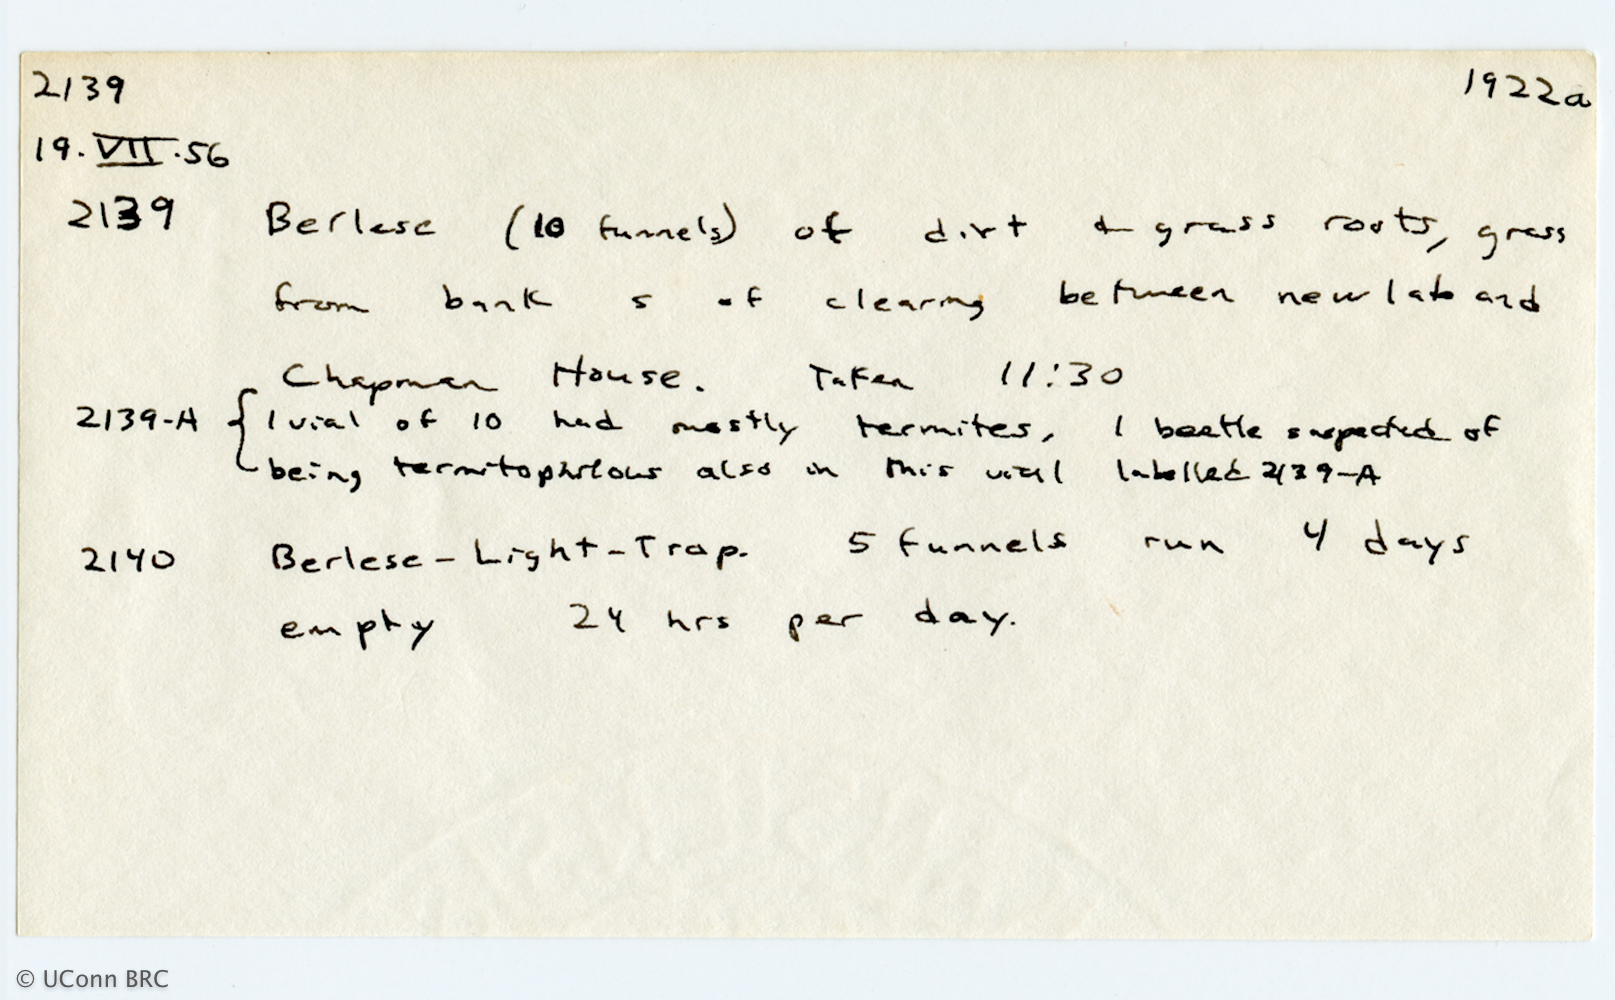 2139
1922a
19.VII.56
2139 Berlese (10 funnels) of dirt & grass roots, grass
from bank s of clearing between new lab and
Chapman House. Taken 11:30
2139-A { 1 vial of 10 had mostly termites, 1 beetle suspected of
being termitophilous also in this vial labelled 2139-A
2140 Berlese-Light-Trap. 5 funnels run 4 days
empty 24 hrs per day.
© UConn BRC